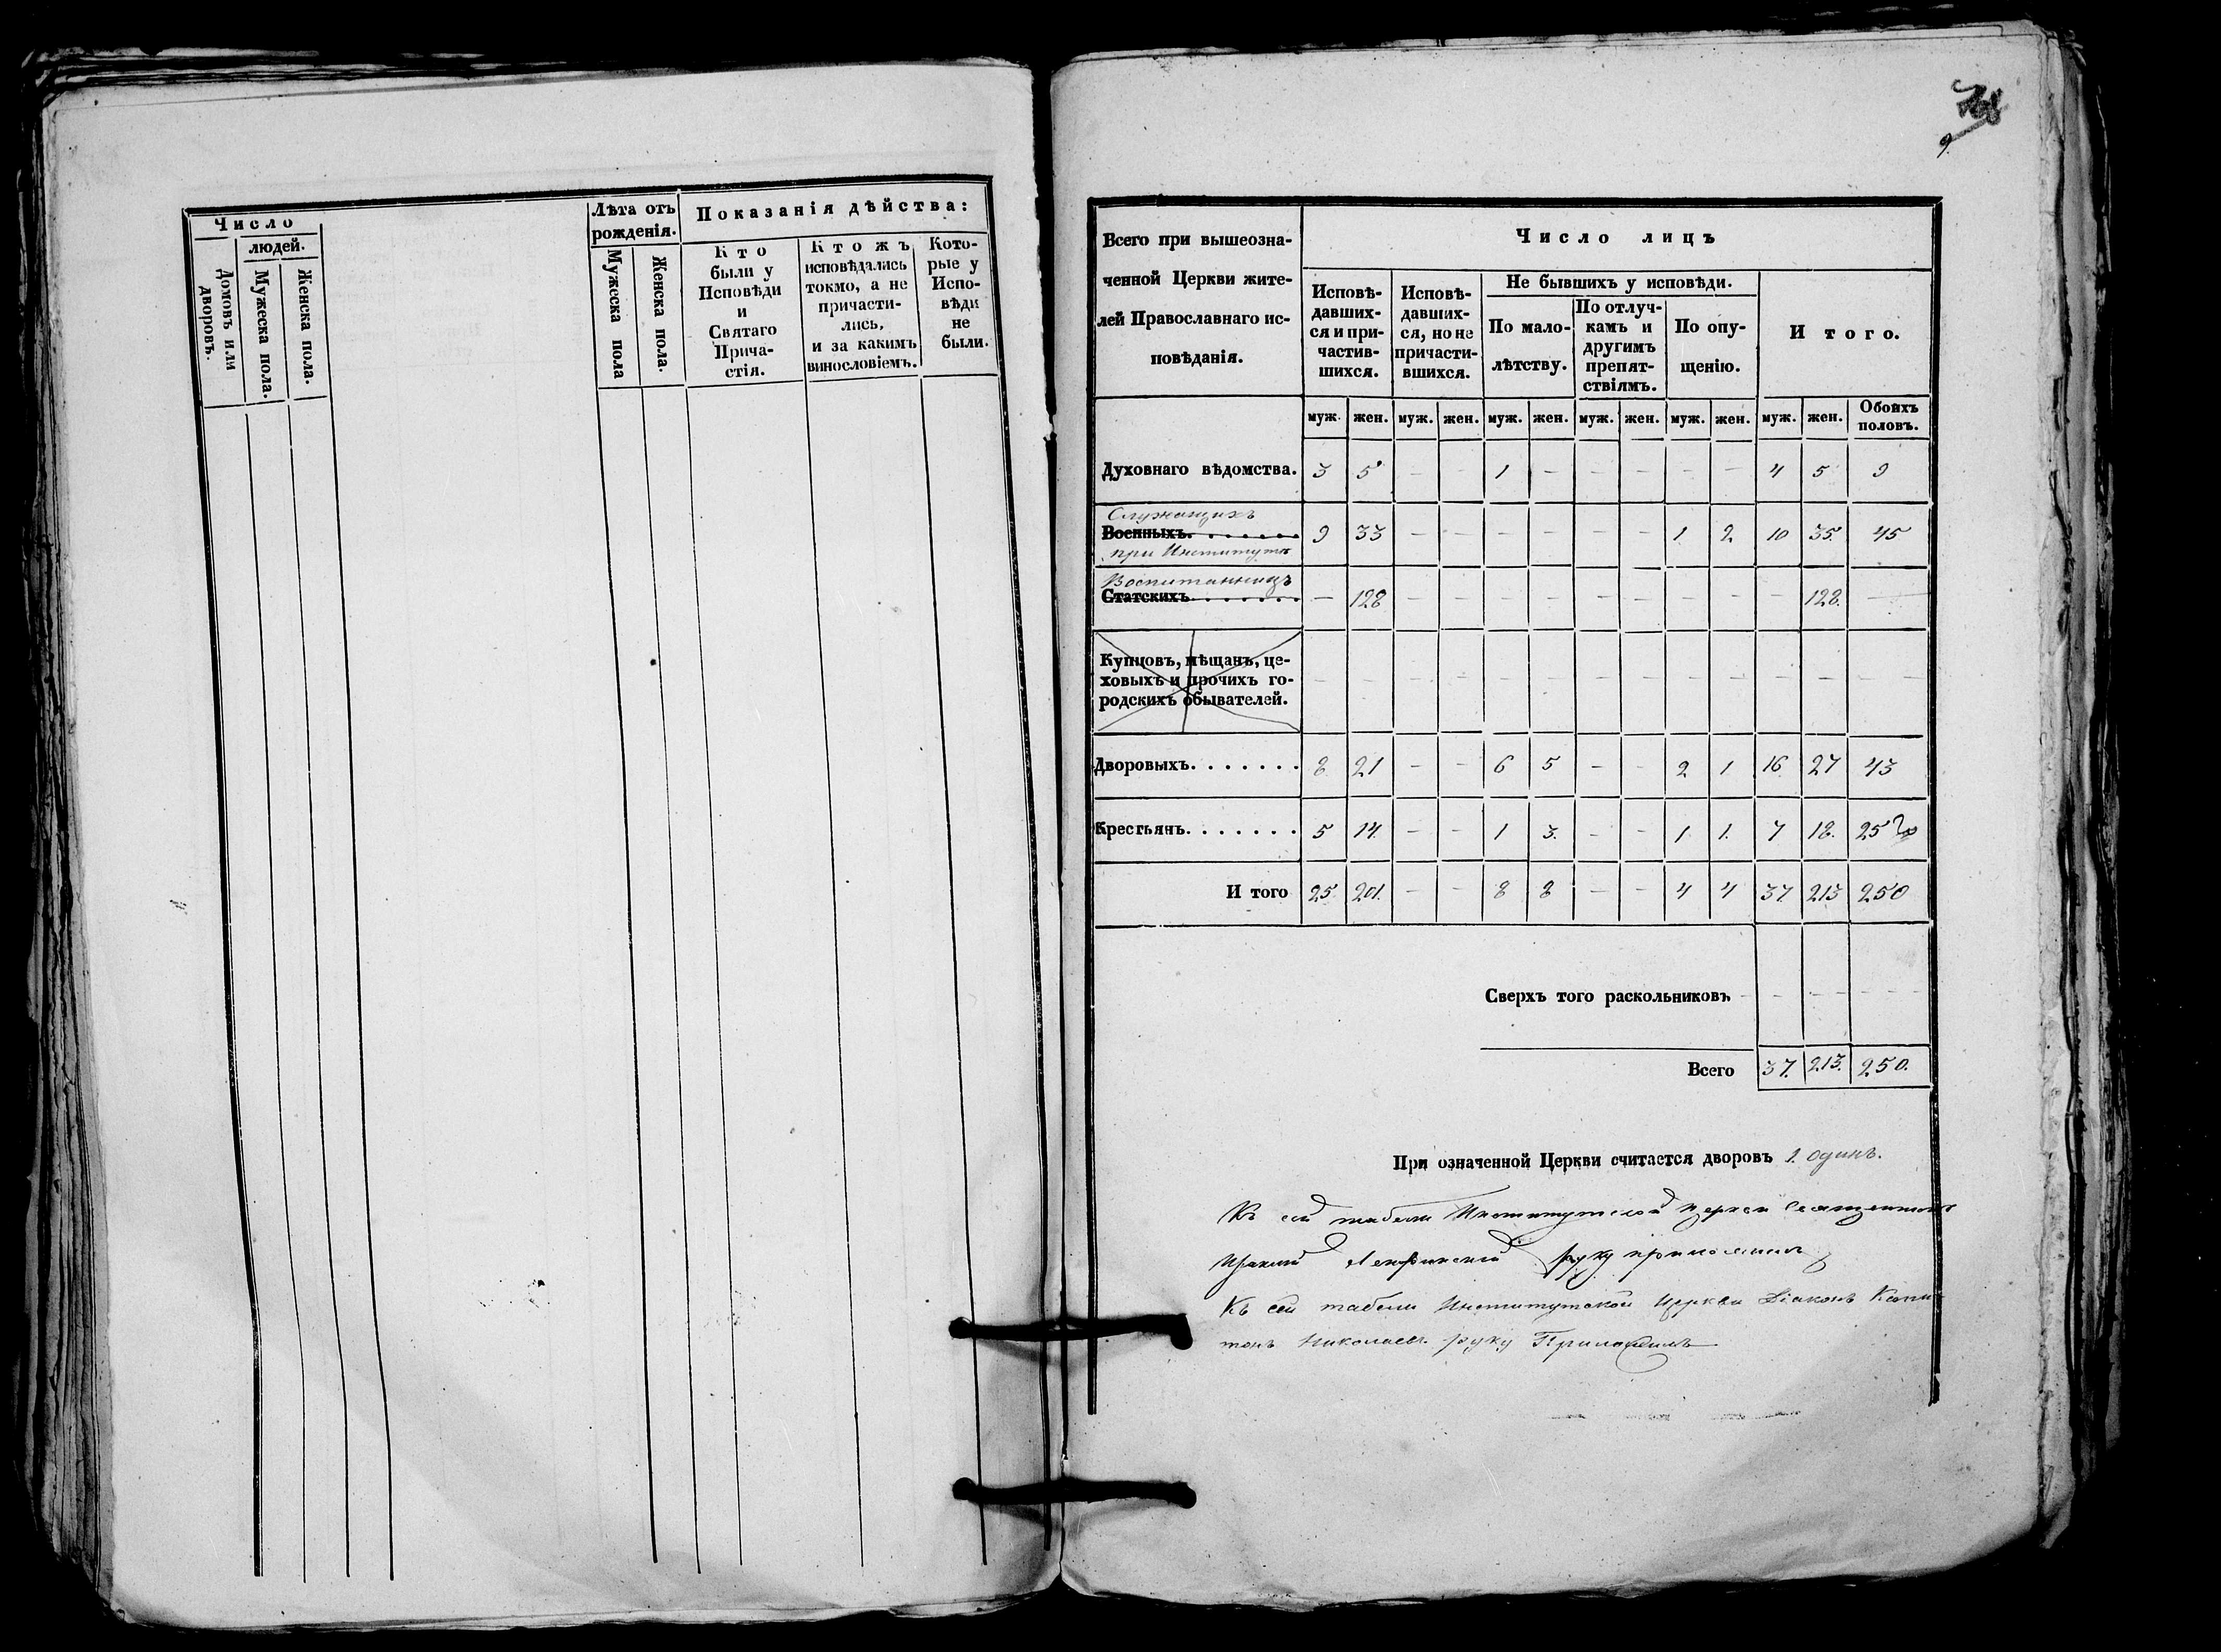 Число
людей.
Домовъ или дворовъ.
Мужеска пола.
Женска пола.
Лѣта отъ
рожденія.
Мужеска пола
Женска пола.
Показанія дѣйства:
Кто
были у
Исповѣди
и
Святаго
Прича-
стія.
Ктожъ
исповѣдались
токмо, а не
причасти-
лись,
и за какимъ
винословіемъ.
Кото-
рые у
Испо-
вѣди
не
были.
Всего при вышеозна-
ченной Церкви жите-
лей Православнаго ис-
повѣданія.
Число лицъ
Исповѣ-
давших-
ся и при-
частив-
шихся.
Исповѣ-
давших-
ся, но не
причасти-
вшихся.
Не бывшихъ у исповѣди.
По мало-
лѣтству.
По отлуч-
камъ и
другимъ
препят-
ствіямъ.
По опу-
щенію.
Итого.
муж. жен. муж. жен. муж. жен. муж. жен. муж. жен. муж. жен. Обоихъ
половъ.
Духовнаго вѣдомства. 3 5 — — 1 — — — — — 4 5 9
Служащихъ
Военныхъ. 9 33 — — — — — — 1 2 10 35 45
при Институтѣ
Воспитанницъ
Статскихъ — 128 — — — — — — — — 128. —
Купцовъ, мѣщанъ, це-
ховыхъ и прочихъ го-
родскихъ обывателей. — — — — — — — — — — — — —
Дворовыхъ. 8 21 — — 6 5 — — 2 1 16 27 43
Крестьянъ. 5 14 — — 1 3. — — 1 1. 7 18. 25
И того 25 201. — — 8 8 — — 4 4 37 213 250
Сверхъ того раскольниковъ — — —
Всего 37. 213. 250.
При означенной Церкви считается дворовъ 1. одинъ.
Къ сей табели Институтской церкви Священникъ
руку приложилъ
Къ сей табели Институтской Церкви Діаконъ Капи-
тонъ Николаевъ руку Приложилъ